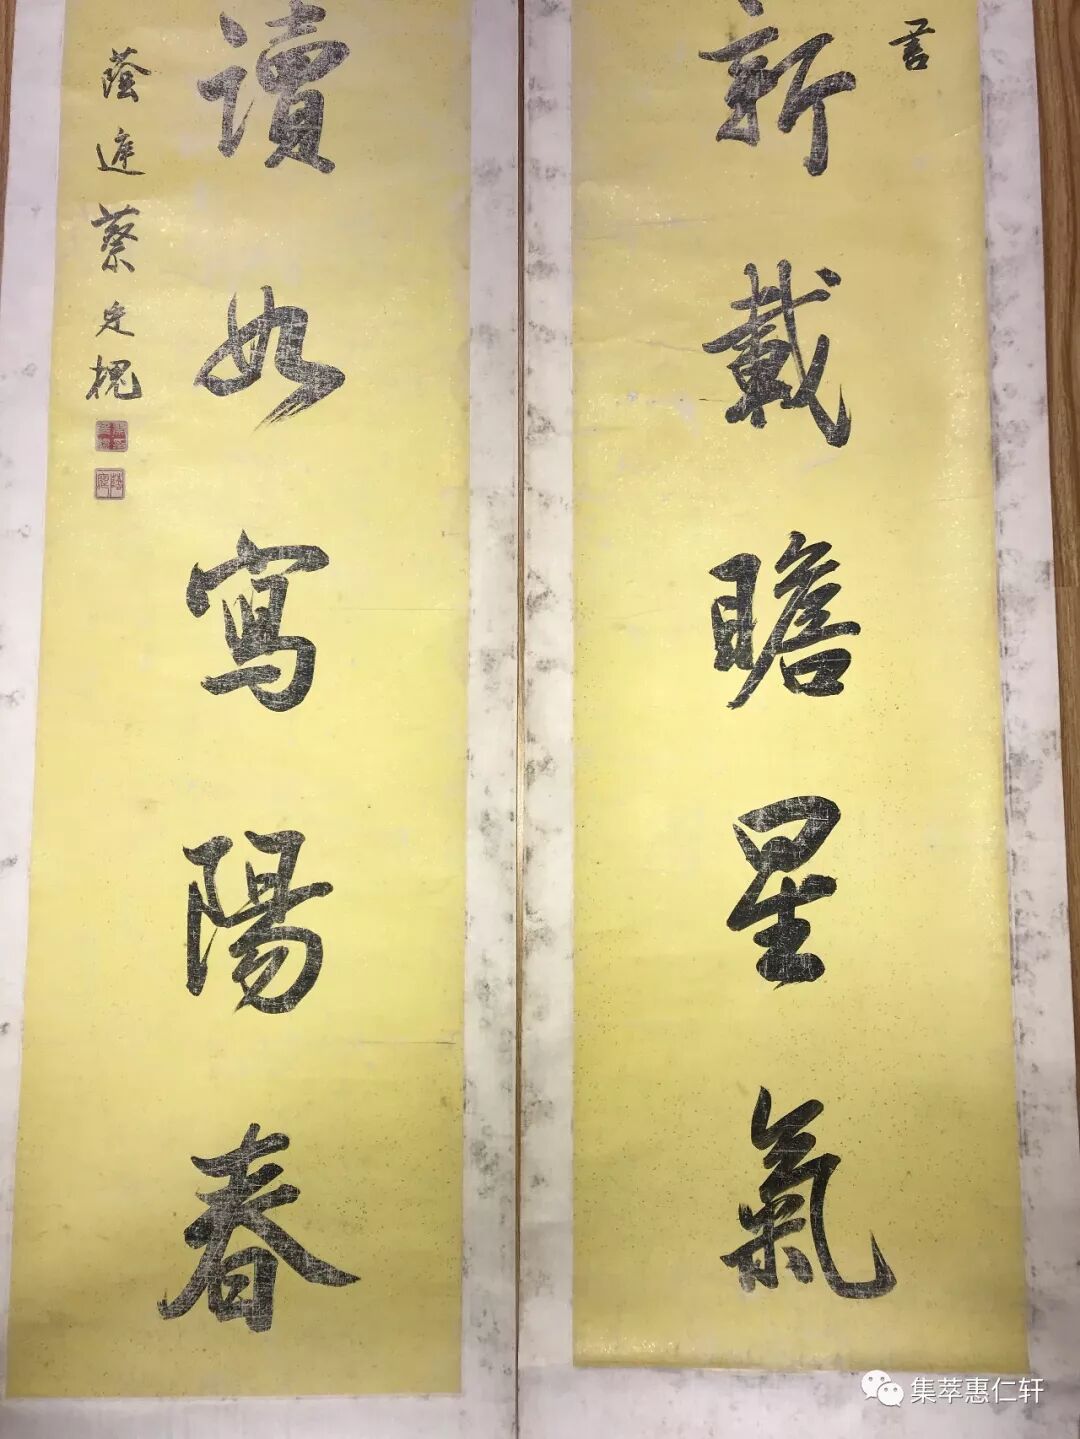 新載瞻星氣
讀如寫陽春
蔭庭蔡槐
集萃惠仁轩